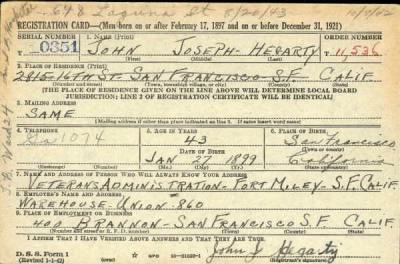 678 Laguna St 8/20/43
REGISTRATION CARD—(Men born on or after February 17, 1897 and on or before December 31, 1921)
SERIAL NUMBER
1. NAME (Print)
ORDER NUMBER
0351
JOHN JOSEPH HEGARTY
11,536
(First) (Middle) (Last)
2. PLACE OF RESIDENCE (Print)
2415-16TH ST. SAN FRANCISCO S.F. CALIF.
(Number and street) (Town, township, village, or city) (County) (State)
[THE PLACE OF RESIDENCE GIVEN ON THE LINE ABOVE WILL DETERMINE LOCAL BOARD
JURISDICTION; LINE 2 OF REGISTRATION CERTIFICATE WILL BE IDENTICAL]
3. MAILING ADDRESS
SAME
[Mailing address if other than place indicated on line 2. If same insert word same]
4. TELEPHONE
5. AGE IN YEARS
6. PLACE OF BIRTH
1074
43
San Francisco
DATE OF BIRTH
(Town or county)
JAN 27 1899
California
(Exchange) (Number)
(Mo.) (Day) (Yr.)
(State or country)
7. NAME AND ADDRESS OF PERSON WHO WILL ALWAYS KNOW YOUR ADDRESS
VETERANS ADMINISTRATION-FORT MILEY-S.F. CALIF.
8. EMPLOYER'S NAME AND ADDRESS
WAREHOUSE-UNION-860
9. PLACE OF EMPLOYMENT OR BUSINESS
400 BRANNON-SAN FRANCISCO S.F. CALIF.
(Number and street or R. F. D. number) (Town) (County) (State)
I AFFIRM THAT I HAVE VERIFIED ABOVE ANSWERS AND THAT THEY ARE TRUE.
D. S. S. Form 1
(Revised 1-1-42)
(over)
GPO
John J Hegarty